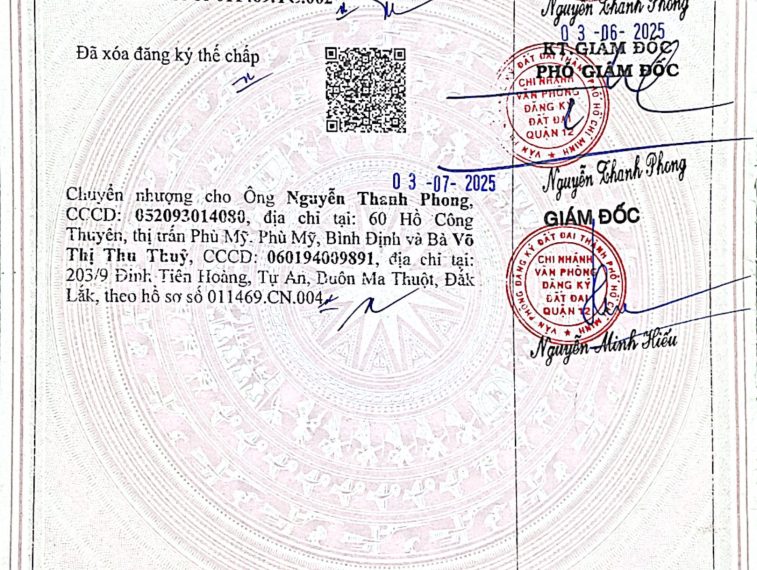 011469.TC.002
Nguyễn Thanh Phong
03-06-2025
Đã xóa đăng ký thế chấp
KT.GIÁM ĐỐC
PHÓ GIÁM ĐỐC
CHI NHÁNH
VĂN PHÒNG
ĐĂNG KÝ
ĐẤT ĐAI
QUẬN 12
Nguyễn Thanh Phong
03-07-2025
Chuyển nhượng cho Ông Nguyễn Thanh Phong,
CCCD: 052093014080, địa chỉ tại: 60 Hồ Công
Thuyên, thị trấn Phù Mỹ. Phù Mỹ, Bình Định và Bà Võ
Thị Thu Thuỷ, CCCD: 060194009891, địa chỉ tại:
203/9 Đinh Tiên Hoàng, Tự An, Buôn Ma Thuột, Đắk
Lắk, theo hồ sơ số 011469.CN.004
GIÁM ĐỐC
VĂN PHÒNG ĐĂNG KÝ ĐẤT ĐAI THÀNH PHỐ HỒ CHÍ MINH
CHI NHÁNH
VĂN PHÒNG
ĐĂNG KÝ
ĐẤT ĐAI
QUẬN 12
Nguyễn Minh Hiếu